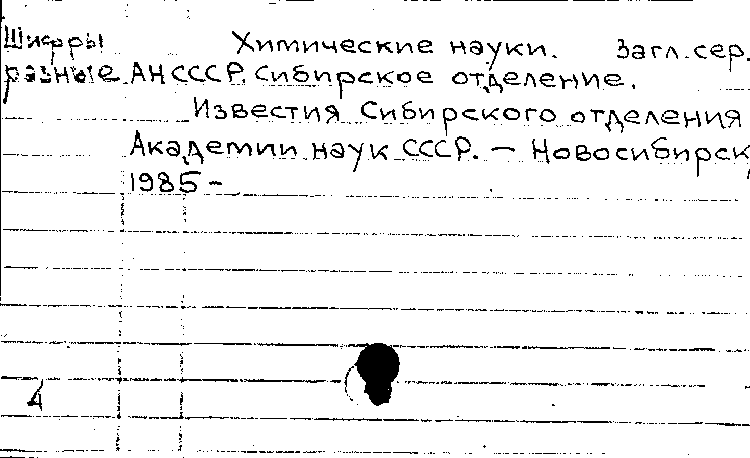 Шифры Химические науки. Загл. сер.
разные АН СССР. Сибирское отделение.
Известия Сибирского отделения
Академии наук СССР. — Новосибирск,
1985 –